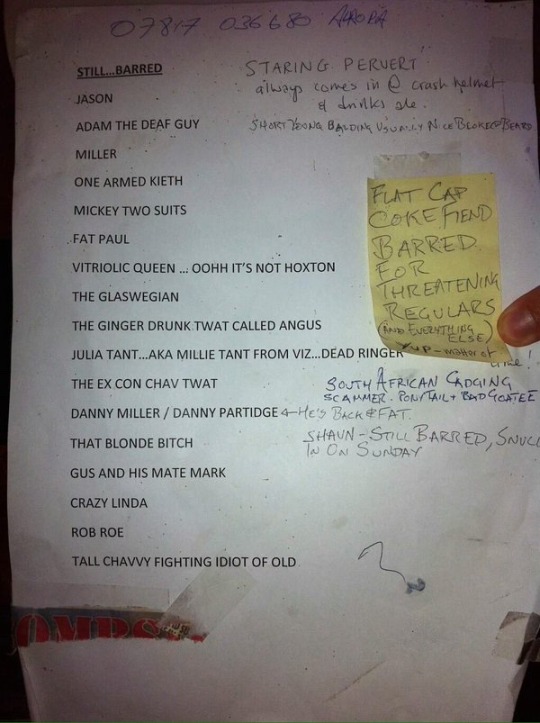 07817 036680 AURORA
STILL...BARRED
STARING PERVERT
always comes in @ crash helmet
& drinks ale.
JASON
ADAM THE DEAF GUY
SHORT YOUNG BALDING USUALLY NICE BLOKE @ BEARD
MILLER
ONE ARMED KIETH
MICKEY TWO SUITS
FAT PAUL
VITRIOLIC QUEEN ... OOHH IT'S NOT HOXTON
THE GLASWEGIAN
THE GINGER DRUNK TWAT CALLED ANGUS
FLAT CAP
COKE FIEND
BARRED
FOR
THREATENING
REGULARS
(AND EVERYTHING
ELSE)
JULIA TANT...AKA MILLIE TANT FROM VIZ...DEAD RINGER
YUP - matter of
time!
THE EX CON CHAV TWAT
SOUTH AFRICAN CADGING
SCAMMER. PONYTAIL + BAD GOATEE
DANNY MILLER / DANNY PARTIDGE ← HE'S BACK & FAT.
THAT BLONDE BITCH
SHAUN - STILL BARRED, SNUCK
IN ON SUNDAY
GUS AND HIS MATE MARK
CRAZY LINDA
ROB ROE
TALL CHAVVY FIGHTING IDIOT OF OLD